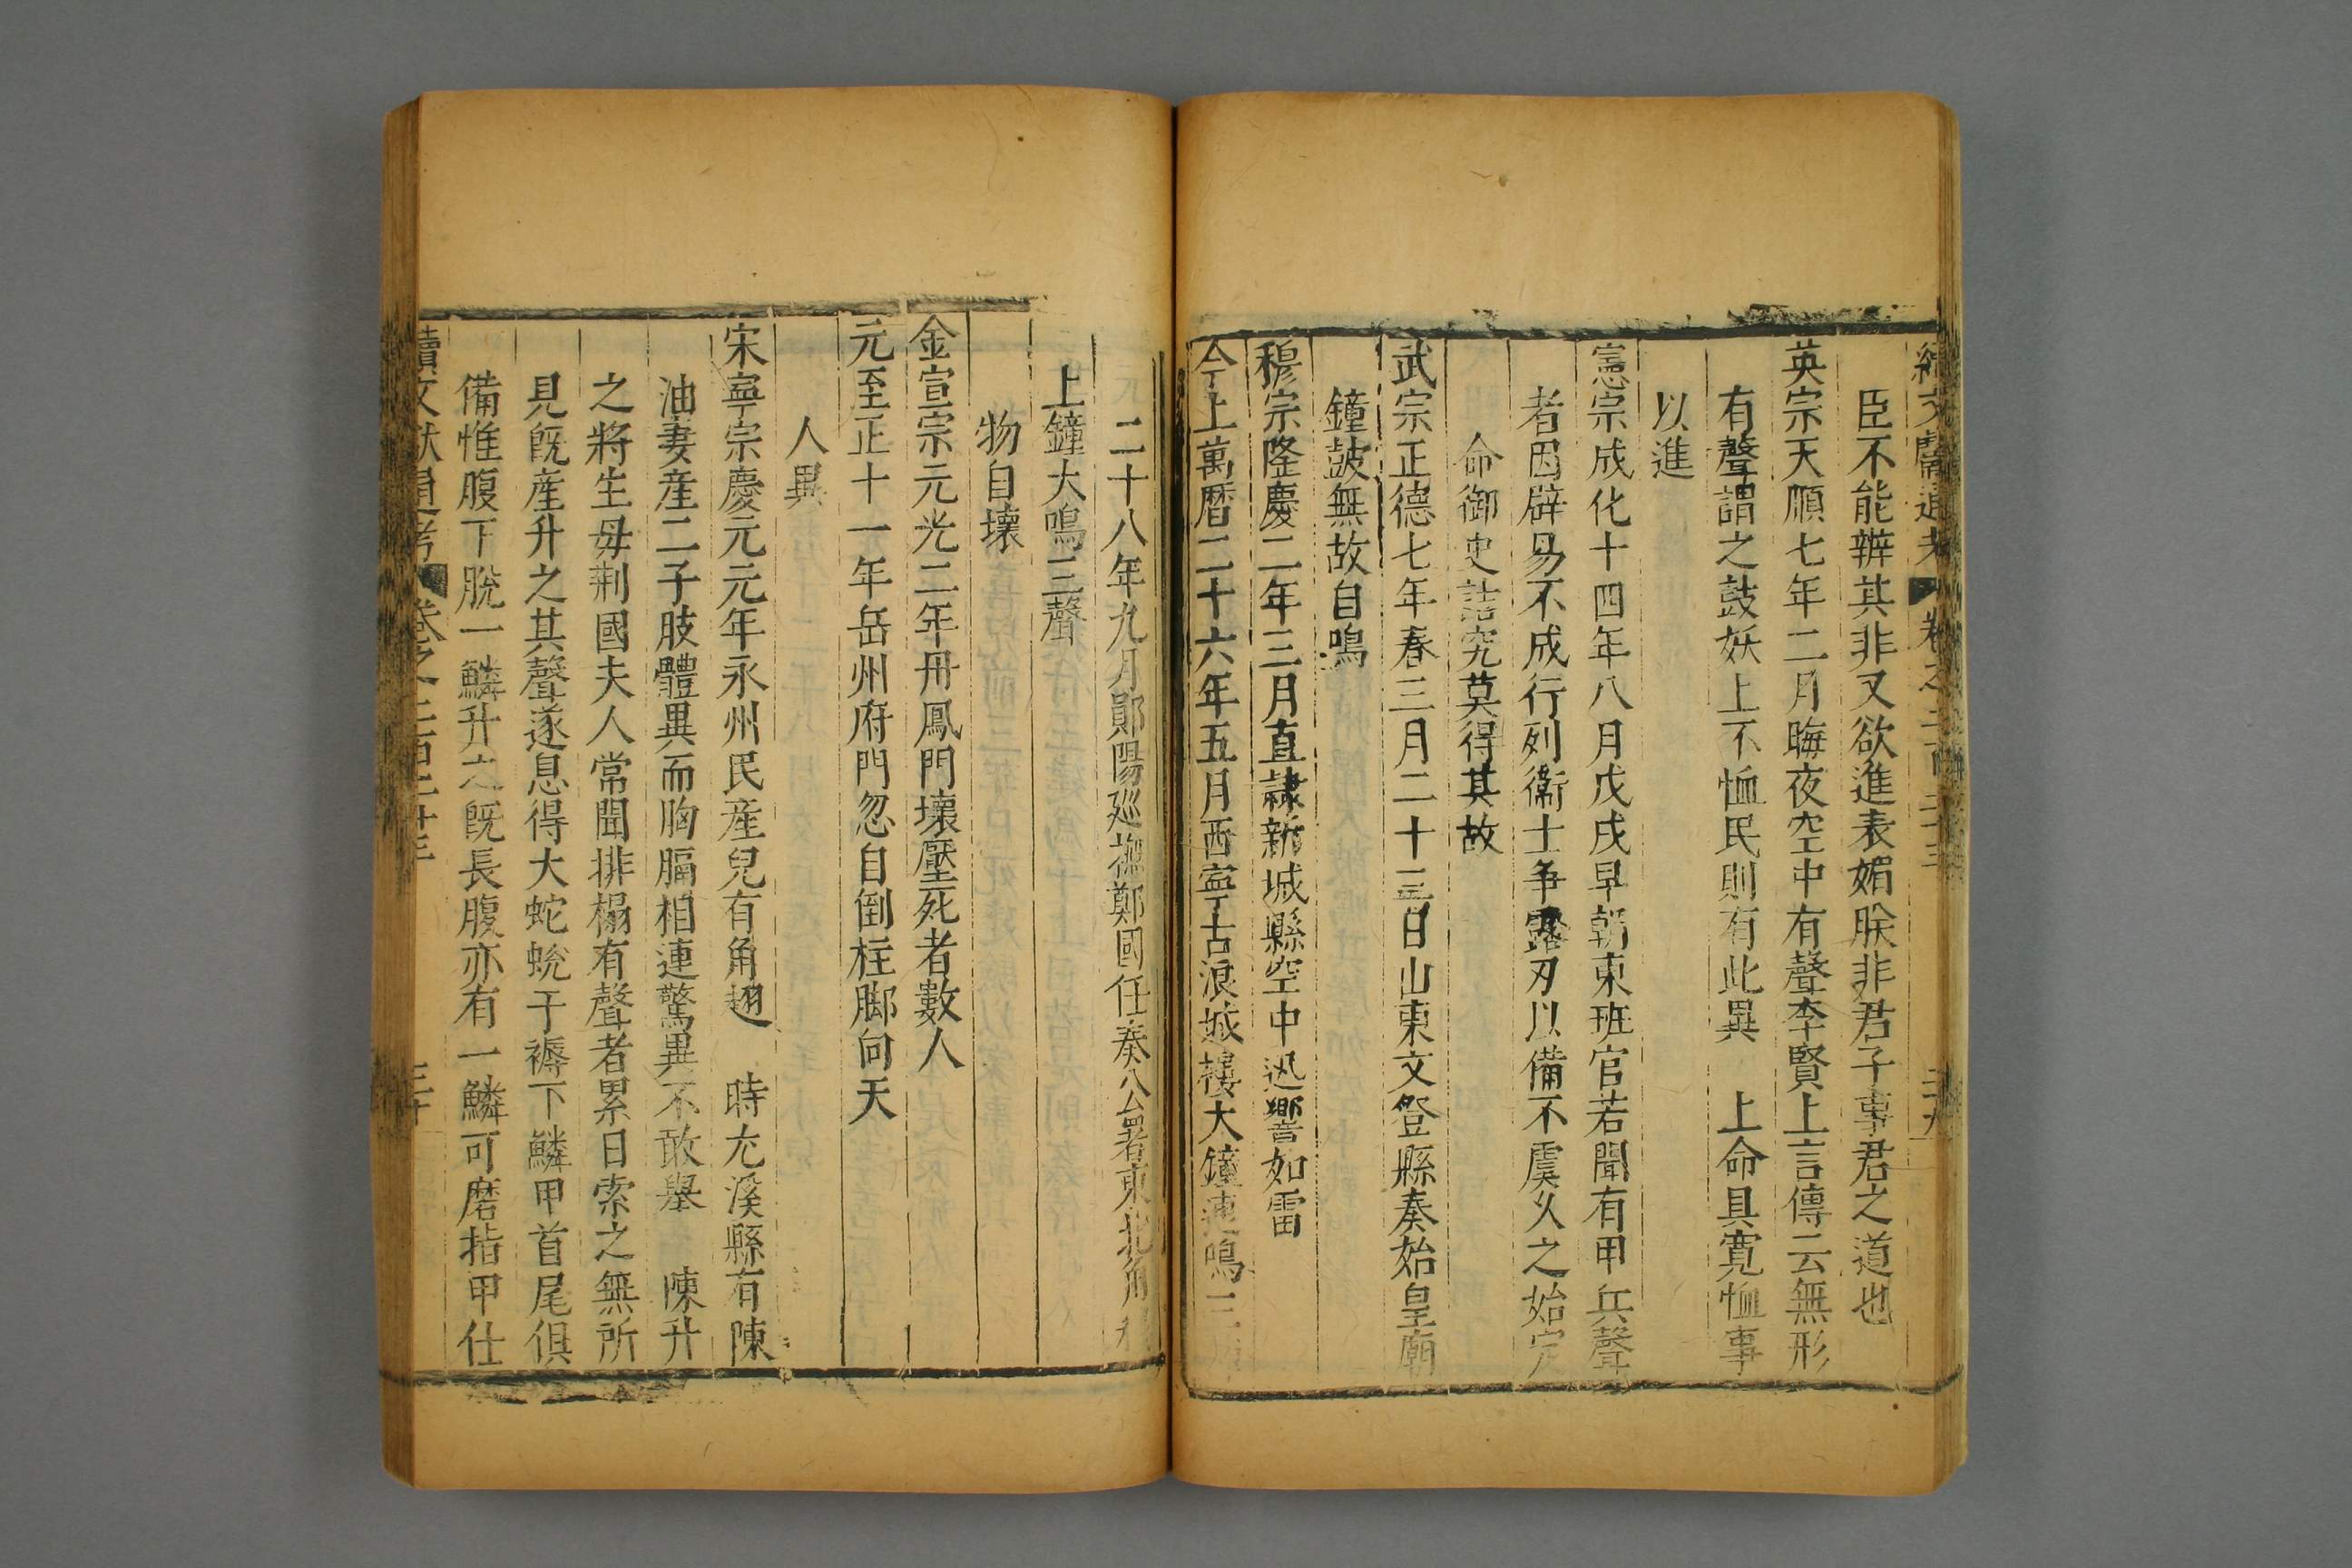 續文獻通考 卷之二百二十三 二十九
臣不能辨其非又欲進表媚朕非君子事君之道也
英宗天順七年二月晦夜空中有聲李賢上言傳云無形
有聲謂之鼓妖上不恤民則有此異 上命具寬恤事
以進
憲宗成化十四年八月戊戌早朝東班官若聞有甲兵聲
者因辟易不成行列衞士争露刃以備不虞乆之始定
命御史詰究莫得其故
武宗正德七年春三月二十三日山東文登縣奏始皇廟
鐘皷無故自鳴
穆宗隆慶二年三月直隷新城縣空中迅響如雷
今上萬曆二十六年五月西寧古浪城樓大鐘連鳴三
二十八年九月鄖陽廵撫鄭國任奏公署東北角
上鐘大鳴三聲
物自壞
金宣宗元光二年丹鳳門壞壓死者數人
元至正十一年岳州府門忽自倒柱脚向天
人異
宋寧宗慶元元年永州民産兒有角翅 時尤溪縣有陳
油妻産二子肢體異而胸膈相連驚異不敢舉 陳升
之將生母荆國夫人常聞排榻有聲者累日索之無所
見旣産升之其聲遂息得大蛇蛻于褥下鱗甲首尾俱
備惟腹下脫一鱗升之旣長腹亦有一鱗可磨指甲仕
續文獻通考 卷之二百二十三 三十